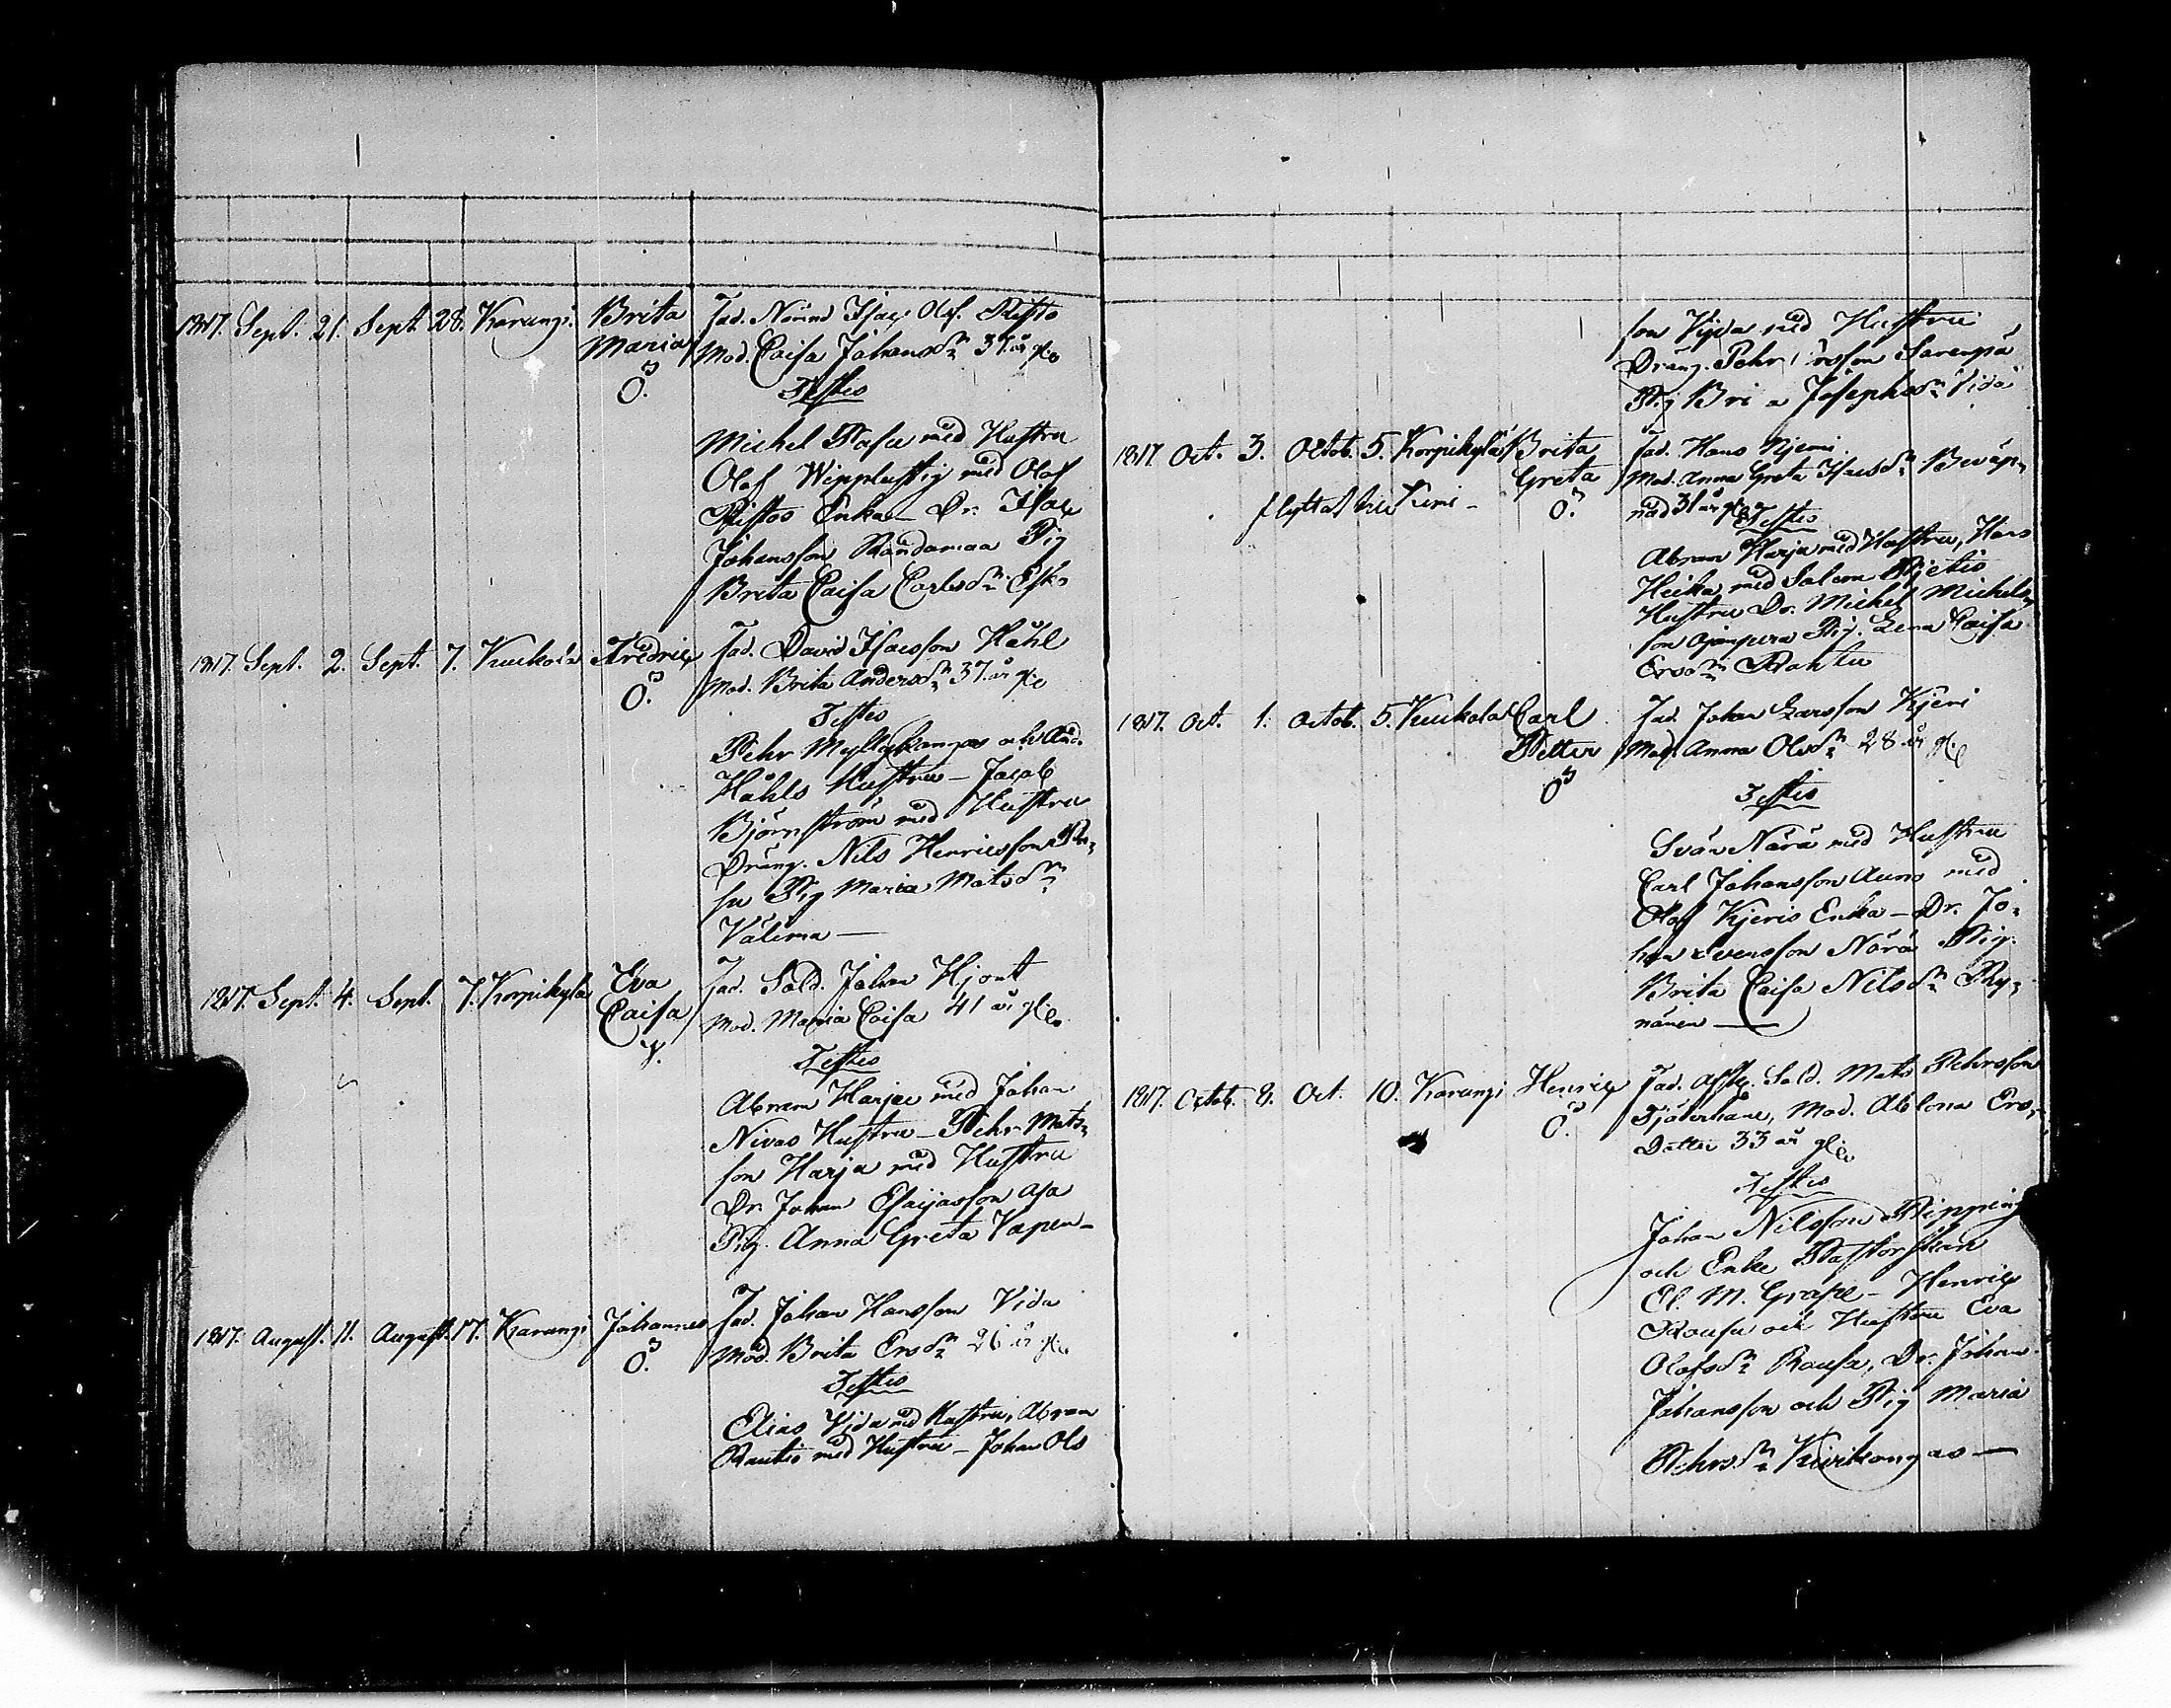 1817. Sept. 21. Sept. 28. Karungi. Brita Fad. Nämnd Isac Olof. Risto
Maria Mod. Caisa Johansdr 37 år gl
Ö. Testes
Michel med Hustru
Olof Wipplustig med Olof
Ristos Enka – Dr. Isac
Johansson Pig
Brita Caisa Carlsdr Esko
1817. Sept. 2. Sept. 7. Kuckola Fredric Fad. David Isacsson Håhl
Ö. Mod. Brita Andersdr 37 år gl
Testes
Pehr Myllykangas och And.
Håhls Hustru – Jacob
Björnström med Hustru
Dräng. Nils Henricsson
Pig Maria Matsdr
Välima –
1817. Sept. 4. Sept. 7. Korpikylä Eva Fad. Sold. Johan Hjont
Caisa Mod. Maria Caisa 41 år gl
Testes
Abram Harju med Johan
Nivas Hustru – Pehr Mats-
son Harju med Hustru
Dr. Johan Esaiasson Asa
Pig. Anna Greta Vapen –
1817. August. 11. August. 17. Karungi Johannes Fad. Johan Hansson Vida
Ö. Mod. Brita Ersdr 26 år gl
Testes
Elias Vida med Hustru, Abram
Rautio med Hustru – Johan Ols
son Vida med Hustru
Dräng. Pehr Ersson
Pig Josephsdr Vida
1817. Oct. 3. Octob. 5. Korpikylä Brita Fad. Hans Njemi
Greta Mod. Anna Greta Isacsdr Bewäp-
flyttat till Kemi – Ö. nad 31 år gl Testes
Abram Harja med Hustru, Hans
Heika med Salem
Hustru Dr. Michel Michels-
son Pig. Lena Caisa
Ersdr Rahtu
1817. Oct. 1. Octob. 5. Kuckola Carl Fad. Johan Larsson Kjeri
Petter Mod. Anna Olsdr 28 år gl
Ö Testes
Svän Närä med Hustru
Carl Johansson Auno med
Olof Kjeris Enka – Dr. Jo-
han Svensson Närä Pig.
Brita Caisa Nilsdr Rhy-
nänen –
1817. Octob. 8. Oct. 10. Karungi Henric Fad. Afsk. Sold. Mats Pehrsson
Ö. Mod. Abelona Ers-
Dotter 33 år gl
Testes
Johan Nilsson Pipping
och Enke Pastorskan
El. M. Grape – Henric
Rousu och Hustru Eva
Olofsdr Rousu, Dr. Johan
Johansson och Pig Maria
Pehrsdr Kurkangas –